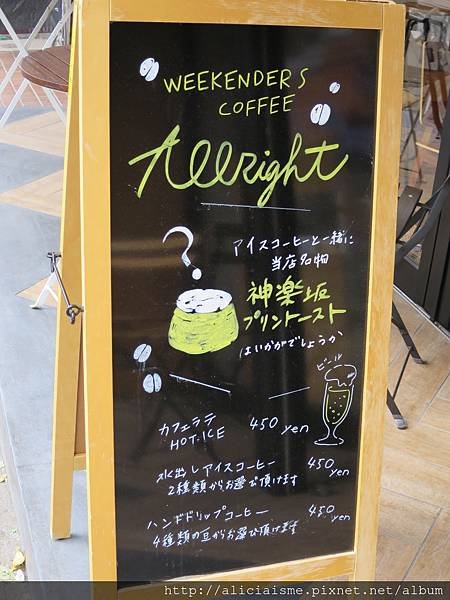 WEEKENDERS
COFFEE
Allright
アイスコーヒーと一緒に
当店名物
神楽坂
プリントースト
はいかがでしょうか
ビール
カフェラテ 450 yen
HOT・ICE
水出しアイスコーヒー 450 yen
2種類からお選び頂けます
ハンドドリップコーヒー 450 yen
4種類の豆からお選び頂けます
http://aliciaisme.pixnet.net/album